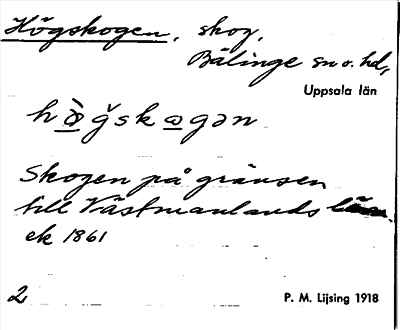 Högskogen, skog,
Bälinge sn o. hd,
Uppsala län
hö̀gskogən
Skogen på gränsen
till Västmanlands län
ek 1861
2
P. M. Lijsing 1918